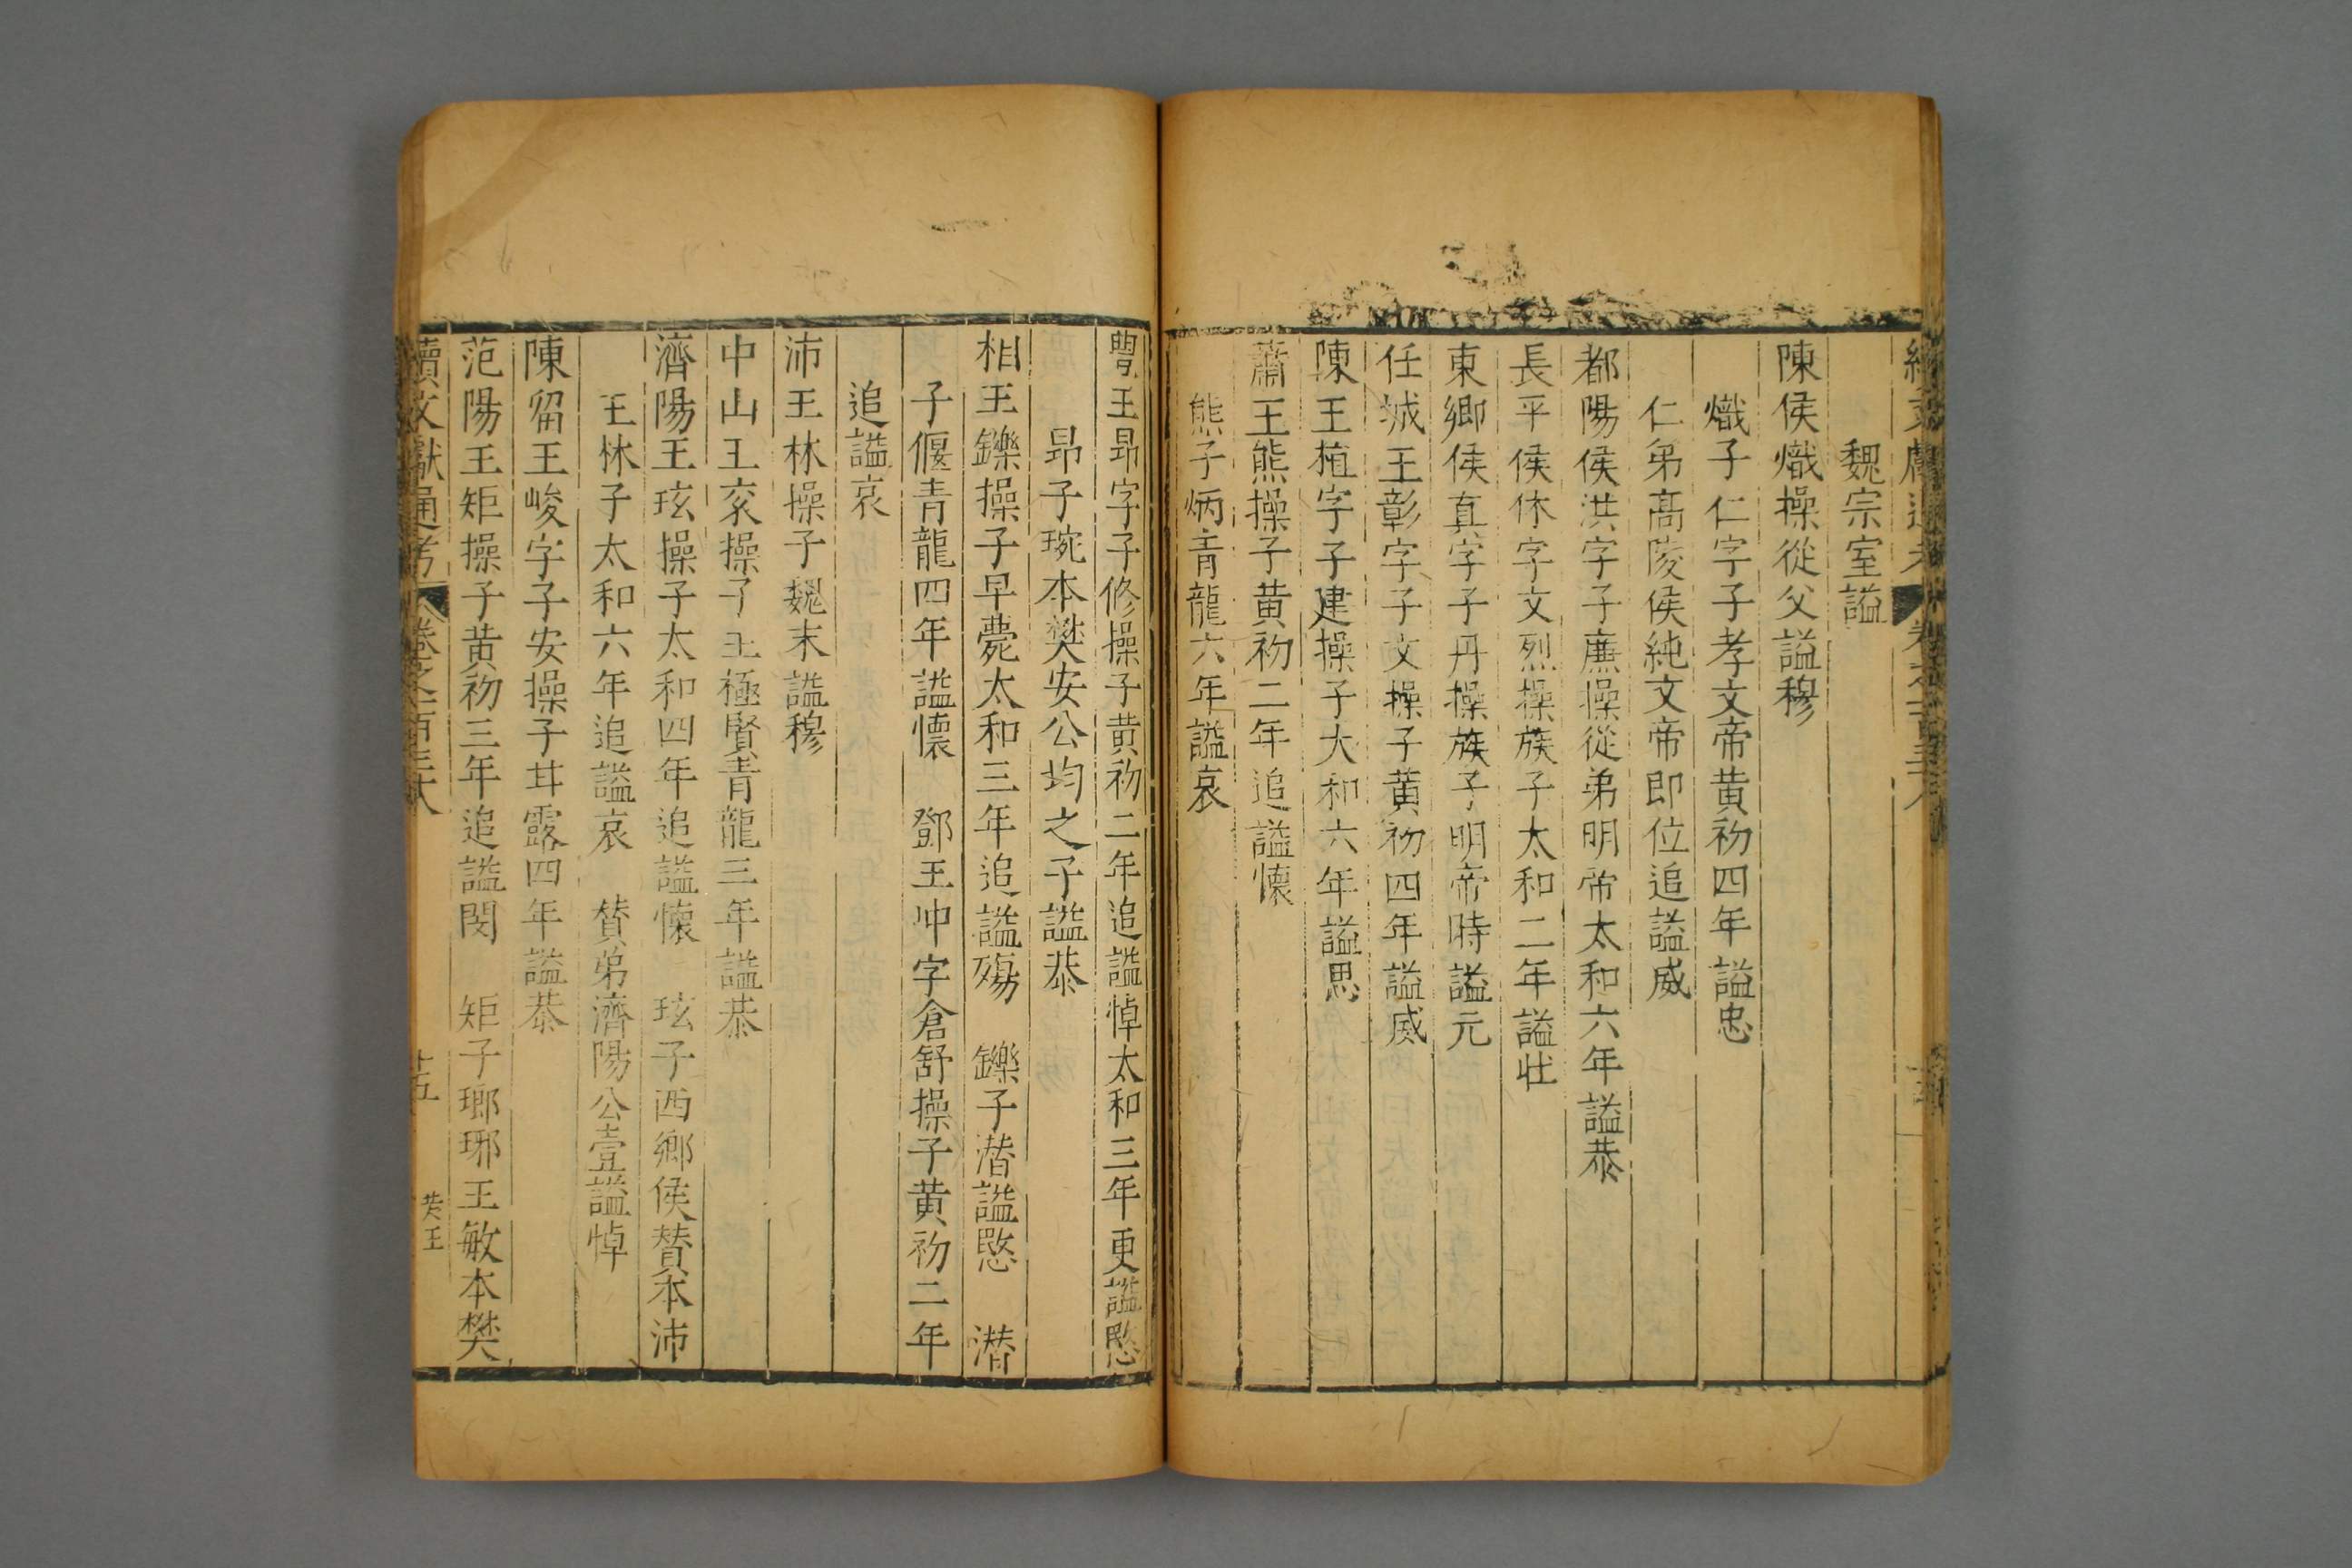 魏宗室謚
陳侯熾操從父謚穆
熾子仁字子孝文帝黃初四年謚忠
仁弟高陵侯純文帝即位追謚威
都陽侯洪字子廉操從弟明帝太和六年謚恭
長平侯休字文烈操族子太和二年謚壯
東鄉侯真字子丹操族子明帝時謚元
任城王彰字子文操子黃初四年謚威
陳王植字子建操子大和六年謚思
蕭王熊操子黃初二年追謚懷
熊子炳青龍六年謚哀
豐王昂字子修操子黃初二年追謚悼太和三年更謚愍
昂子琬本樊安公均之子謚恭
相王鑠操子早薨太和三年追謚殤 鑠子潛謚愍 潛
子偃青龍四年謚懷 鄧王冲字倉舒操子黃初二年
追謚哀
沛王林操子魏末謚穆
中山王衮操子王極賢青龍三年謚恭
濟陽王玹操子太和四年追謚懷 玹子西鄉侯贊本沛
王林子太和六年追謚哀 贊弟濟陽公壹謚悼
陳留王峻字子安操子甘露四年謚恭
范陽王矩操子黃初三年追謚閔 矩子瑯琊王敏本樊
續文獻通考 卷之一百三十六 十五 英王